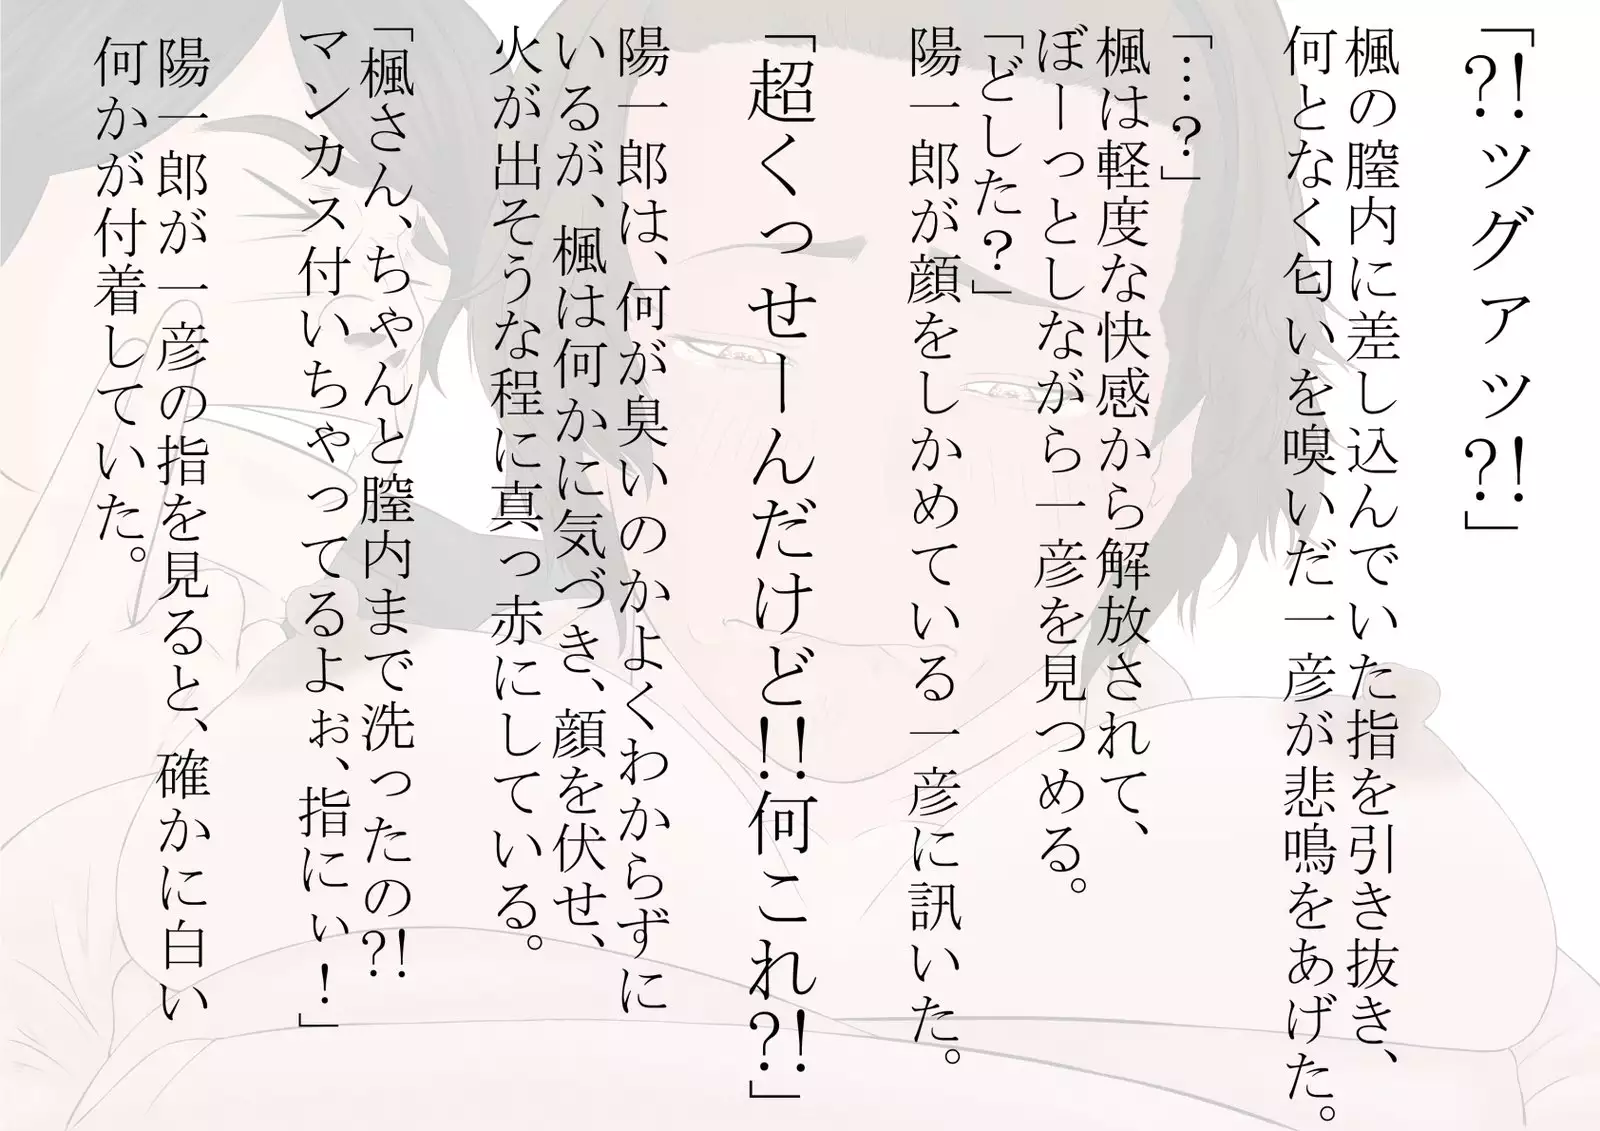 「?!ッグァッ?!」
楓の膣内に差し込んでいた指を引き抜き、
何となく匂いを嗅いだ一彦が悲鳴をあげた。
「…?」
楓は軽度な快感から解放されて、
ぼーっとしながら一彦を見つめる。
「どした?」
陽一郎が顔をしかめている一彦に訊いた。
「超くっせーんだけど!!何これ?!」
陽一郎は、何が臭いのかよくわからずに
いるが、楓は何かに気づき、顔を伏せ、
火が出そうな程に真っ赤にしている。
「楓さん、ちゃんと膣内まで洗ったの?!
マンカス付いちゃってるよぉ、指にぃ!」
陽一郎が一彦の指を見ると、確かに白い
何かが付着していた。